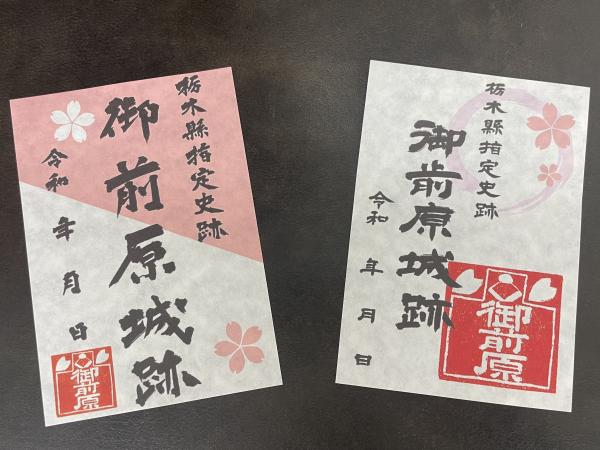 栃木縣指定史跡
御前原城跡
令和 年 月 日
御前原
栃木縣指定史跡
御前原城跡
令和 年 月 日
御前原